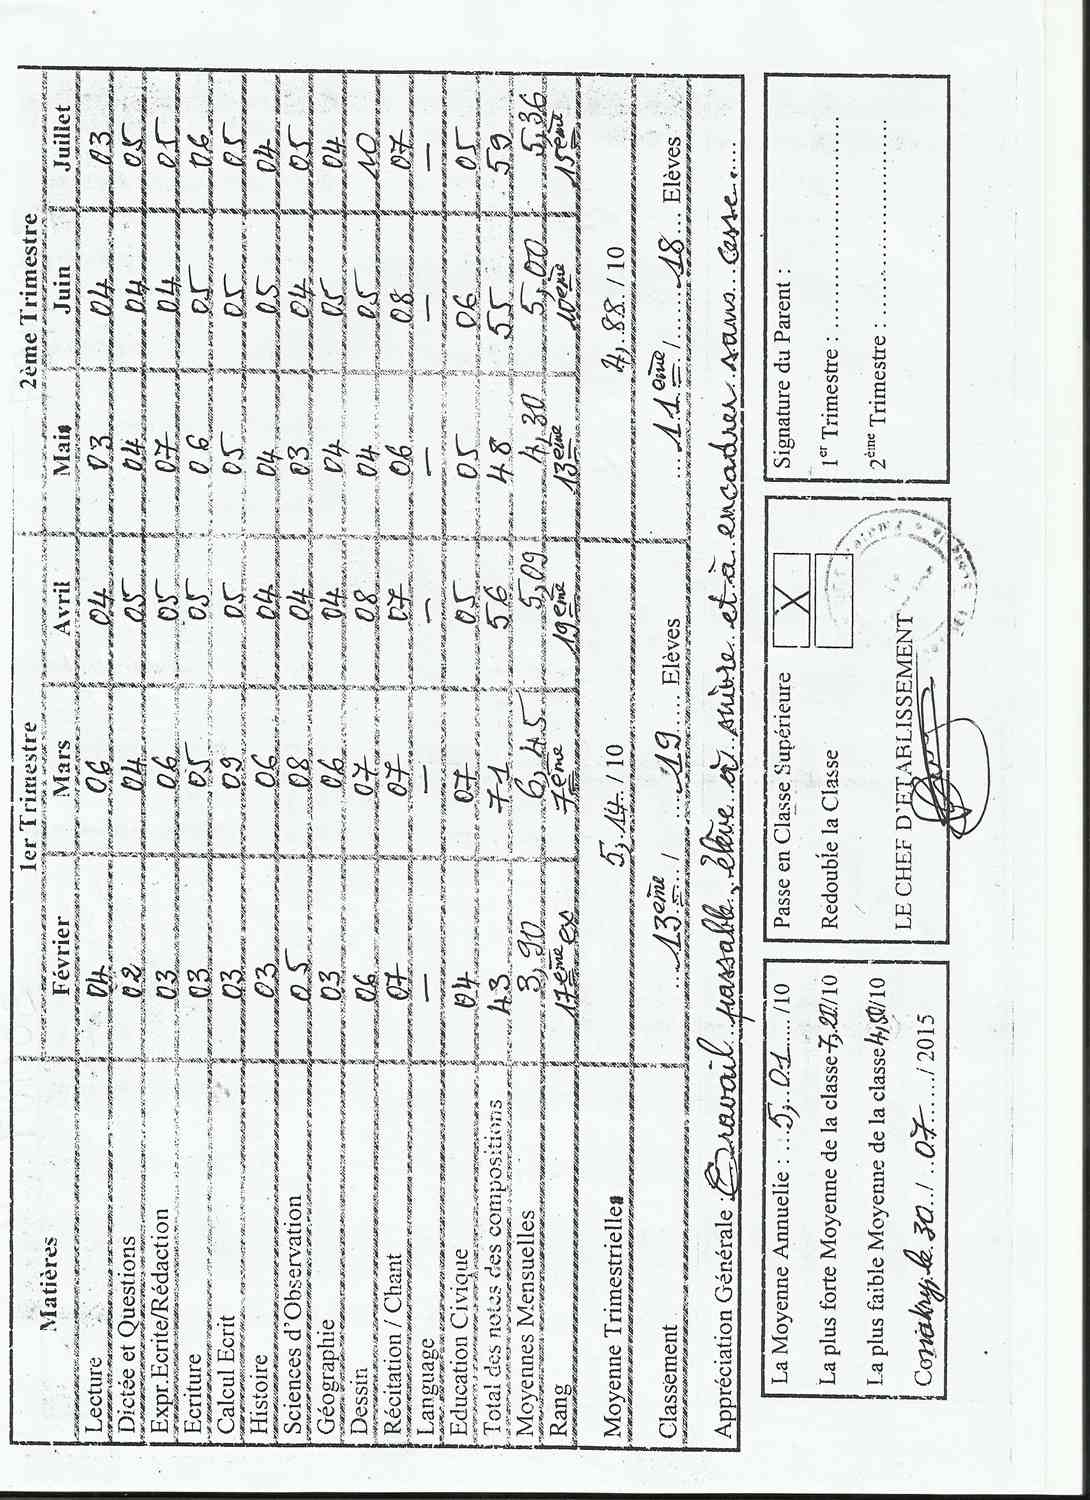 Matières 1er Trimestre 2ème Trimestre
Février Mars Avril Mai Juin Juillet
Lecture 04 06 04 03 04 03
Dictée et Questions 02 04 05 04 04 05
Expr.Ecrite/Rédaction 03 06 05 07 04 05
Ecriture 03 05 05 06 05 06
Calcul Ecrit 03 09 05 05 05 05
Histoire 03 06 04 04 05 04
Sciences d'Observation 05 08 04 03 04 05
Géographie 03 06 04 04 05 04
Dessin 06 07 08 04 05 10
Récitation / Chant 07 07 07 06 08 07
Language — — — — — —
Education Civique 04 07 05 05 06 05
Total des notes des compositions 43 71 56 48 55 59
Moyennes Mensuelles 3,90 6,45 5,09 4,30 5,00 5,36
Rang 17ème ex 7ème 19ème 13ème 10ème 15ème
Moyenne Trimestrielles 5,14 / 10 4,88 / 10
Classement 13ème / 19 Elèves 11ème / 18 Elèves
Appréciation Générale : Travail passable, élève à suivre et à encadrer sans cesse....
La Moyenne Annuelle : 5,01 /10
La plus forte Moyenne de la classe 7,20/10
La plus faible Moyenne de la classe 4,50/10
Conakry, le 30 / 07 / 2015
Passe en Classe Supérieure X
Redouble la Classe
LE CHEF D'ETABLISSEMENT
Signature du Parent :
1er Trimestre :
2ème Trimestre :